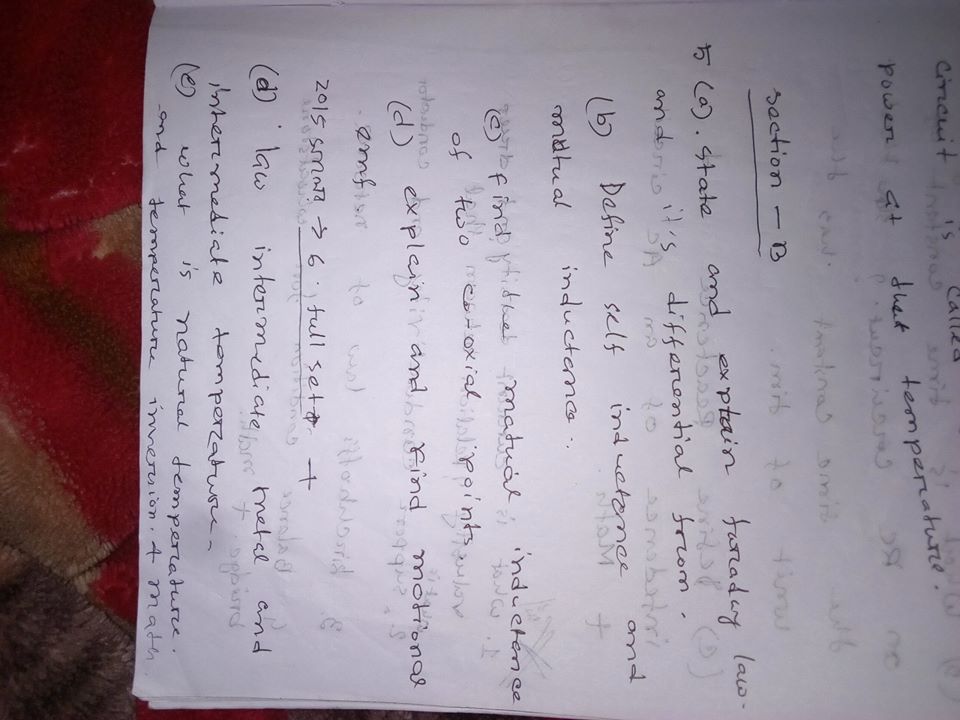 circuit is called
power at that temperature.
section - B
5 (a). state and explain faraday law.
and it's differential from.
(b) Define self inductence and
mutual inductence.
(c) find the mutual inductence
of two coaxial points
(d) explain and find motional
emf
2015 সালের → 6. full set. +
(d) law intermediate metal and
intermediate temperature.
(e) what is natural temperature.
and temperature inversion. + math